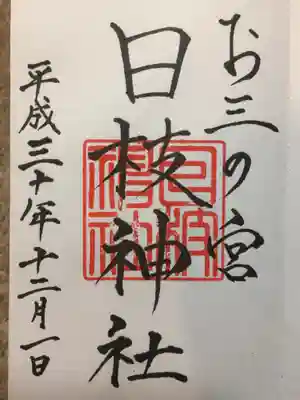 お三の宮
日枝神社
平成三十年十二月一日